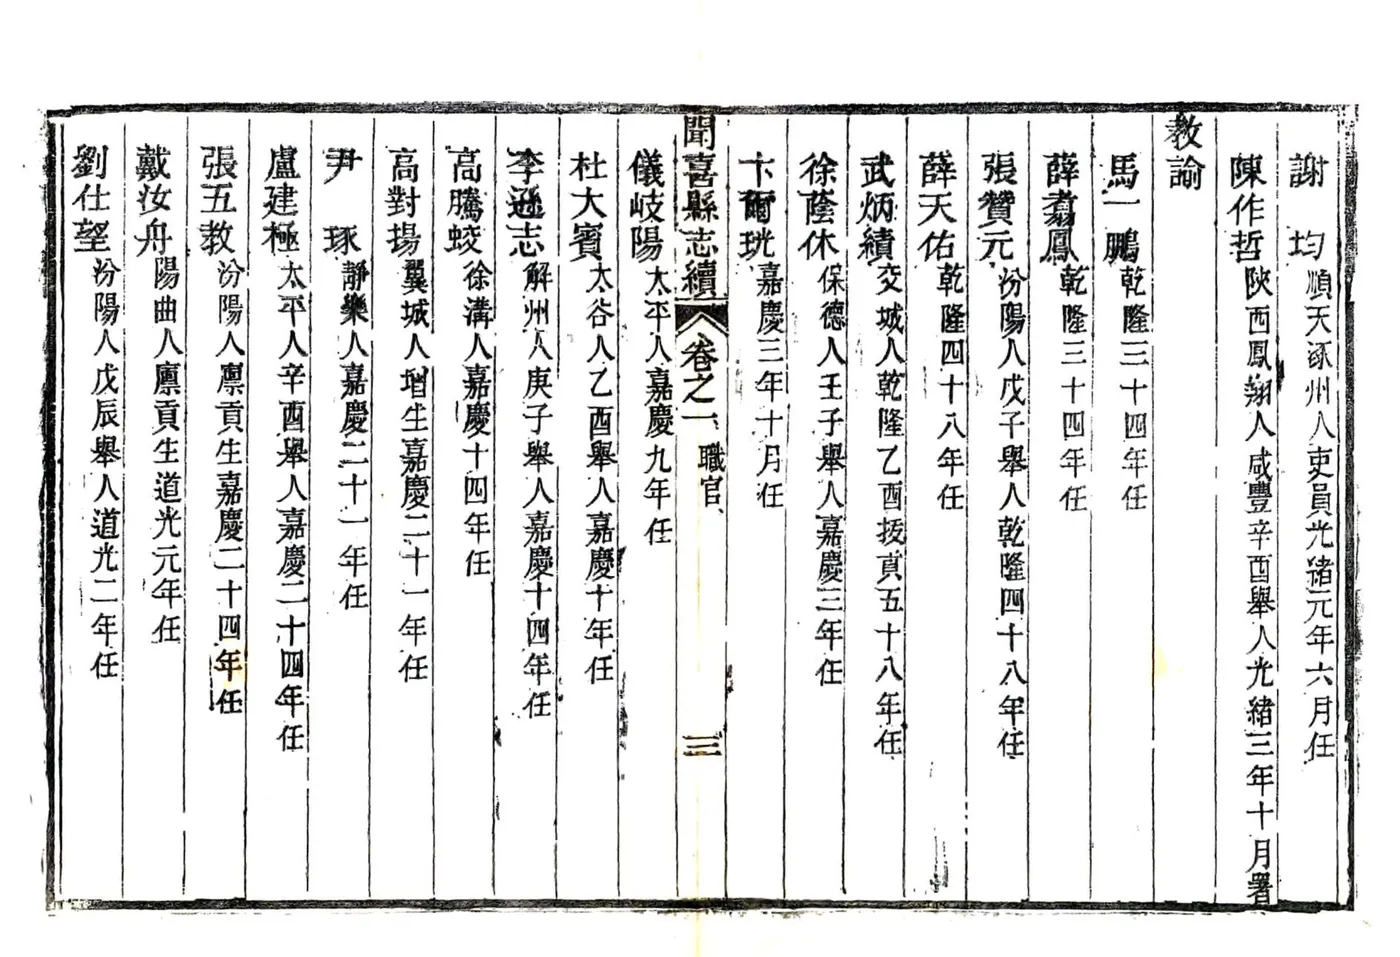 謝 均順天涿州人吏員光緒元年六月任
陳作哲陝西鳳翔人咸豐辛酉舉人光緒三年十月署
教諭
馬一鵬乾隆三十四年任
薛翥鳳乾隆三十四年任
張贊元汾陽人戊子舉人乾隆四十八年任
薛天佑乾隆四十八年任
武炳續交城人乾隆乙酉拔貢五十八年任
徐蔭休保德人壬子舉人嘉慶三年任
卞爾珖嘉慶三年十月任
聞喜縣志續 卷之一 職官 三
儀岐陽太平人嘉慶九年任
杜大賓太谷人乙酉舉人嘉慶十年任
李遜志解州人庚子舉人嘉慶十四年任
高騰蛟徐溝人嘉慶十四年任
高對揚翼城人增生嘉慶二十一年任
尹 琢靜樂人嘉慶二十一年任
盧建極太平人辛酉舉人嘉慶二十四年任
張五教汾陽人廩貢生嘉慶二十四年任
戴汝舟陽曲人廩貢生道光元年任
劉仕望汾陽人戊辰舉人道光二年任